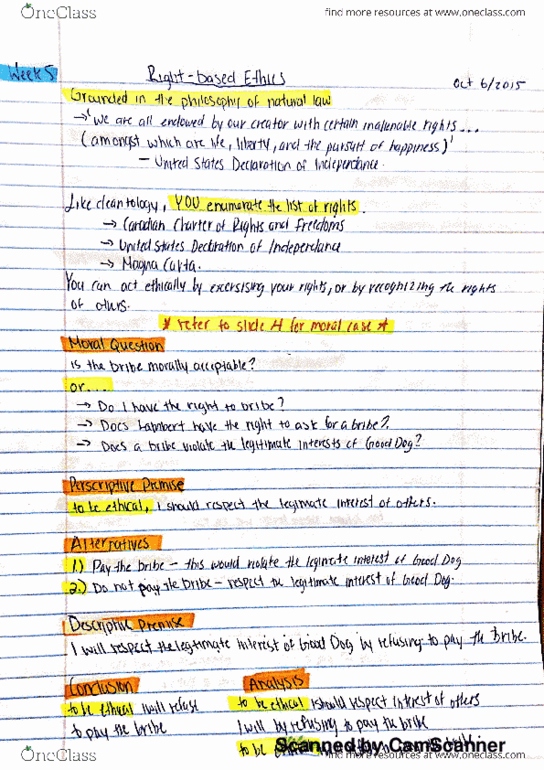 OneClass
find more resources at www.oneclass.com
Week 5
Right-based Ethics
Oct 6/2015
Grounded in the philosophy of natural law
→ "we are all endowed by our creator with certain inalienable rights...
(amongst which are life, liberty, and the pursuit of happiness)"
- United States Declaration of Independance.
Like deontology, YOU enumerate the list of rights.
→ Canadian Charter of Rights and Freedoms
→ United States Decltration of Independance
→ Magna Carta.
You can act ethically by excersising your rights, or by recognizing the rights
of others.
* refer to slide 14 for moral case *
Moral Question
is the bribe morally acceptable?
or....
→ Do I have the right to bribe?
→ Does Lambert have the right to ask for a bribe?
→ Does a bribe violate the legitimate interests of Good Dog?
Perscriptive Premise
to be ethical, I should respect the legimate interest of others.
Alternatives
1.) Pay the bribe - this would violate the legimate interest of Good Dog
2.) Do not pay the bribe - respect the legitimate interest of Good Dog.
Descriptive Premise
I will respect the legitimate interest of Good Dog by refusing to pay the bribe.
Conclusion
to be ethical I will refuse
to pay the bribe
Analysis
to be ethical I should respect interest of others
I will by refusing to pay the bribe
to be
Scanned by CamScanner
OneClass
find more resources at www.oneclass.com